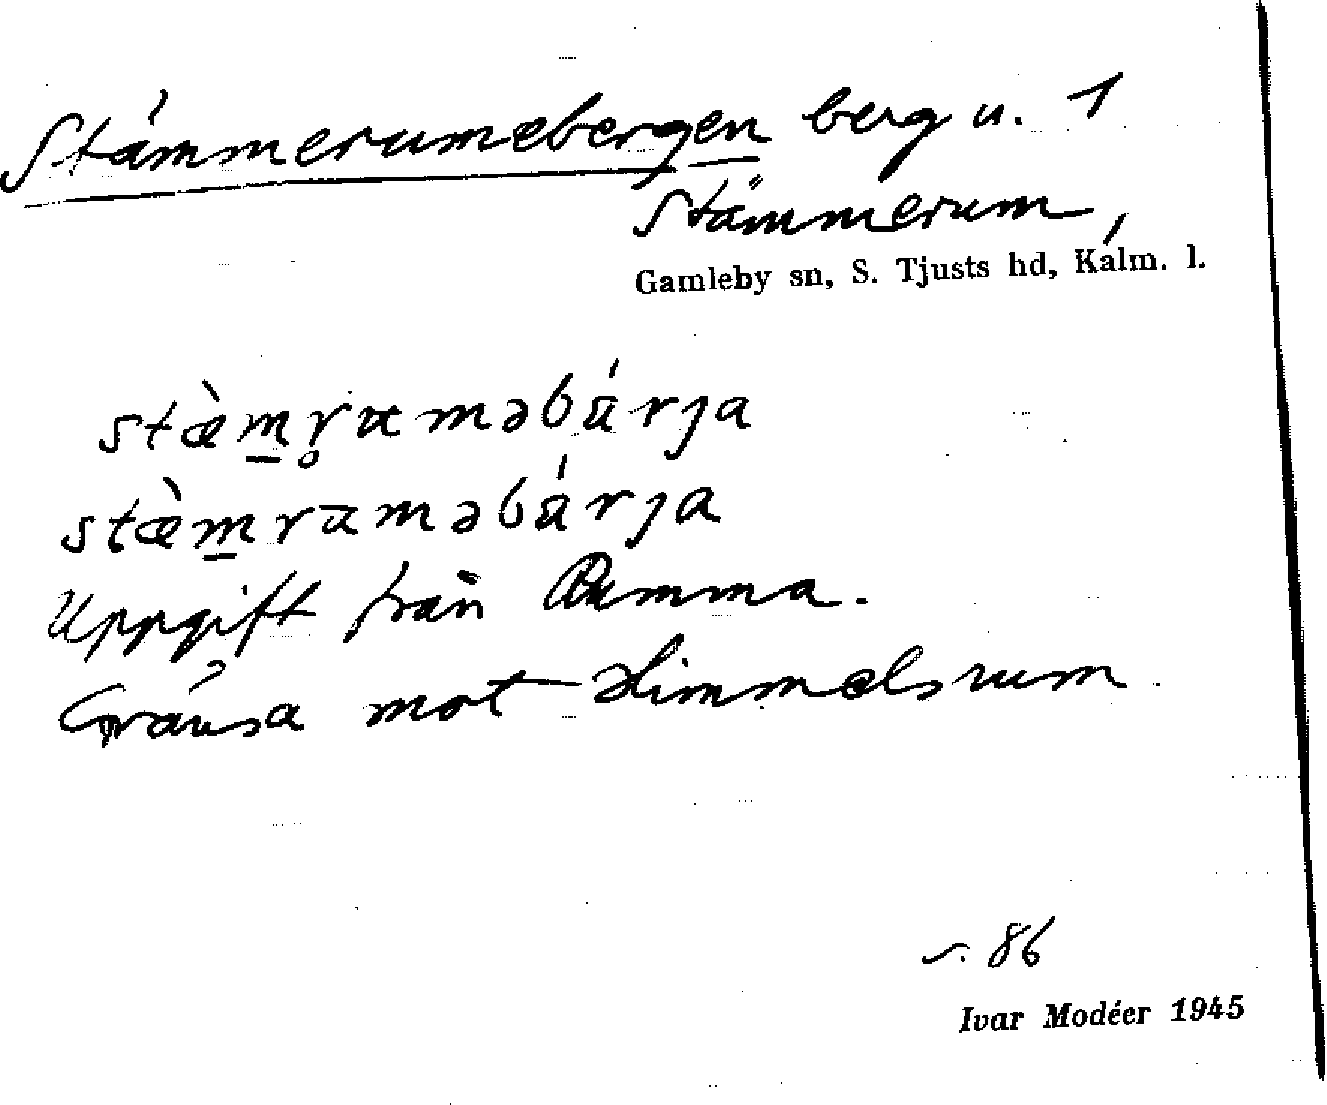 Stämmerumebergen berg u. 1
Stämmerum,
Gamleby sn, S. Tjusts hd, Kalm. l.
stæ̀m̲r̥aməbárja
stæ̀m̲raməbárja
Uppgift från Rumma.
Gränsa mot Himmelsrum.
s. 86
Ivar Modéer 1945